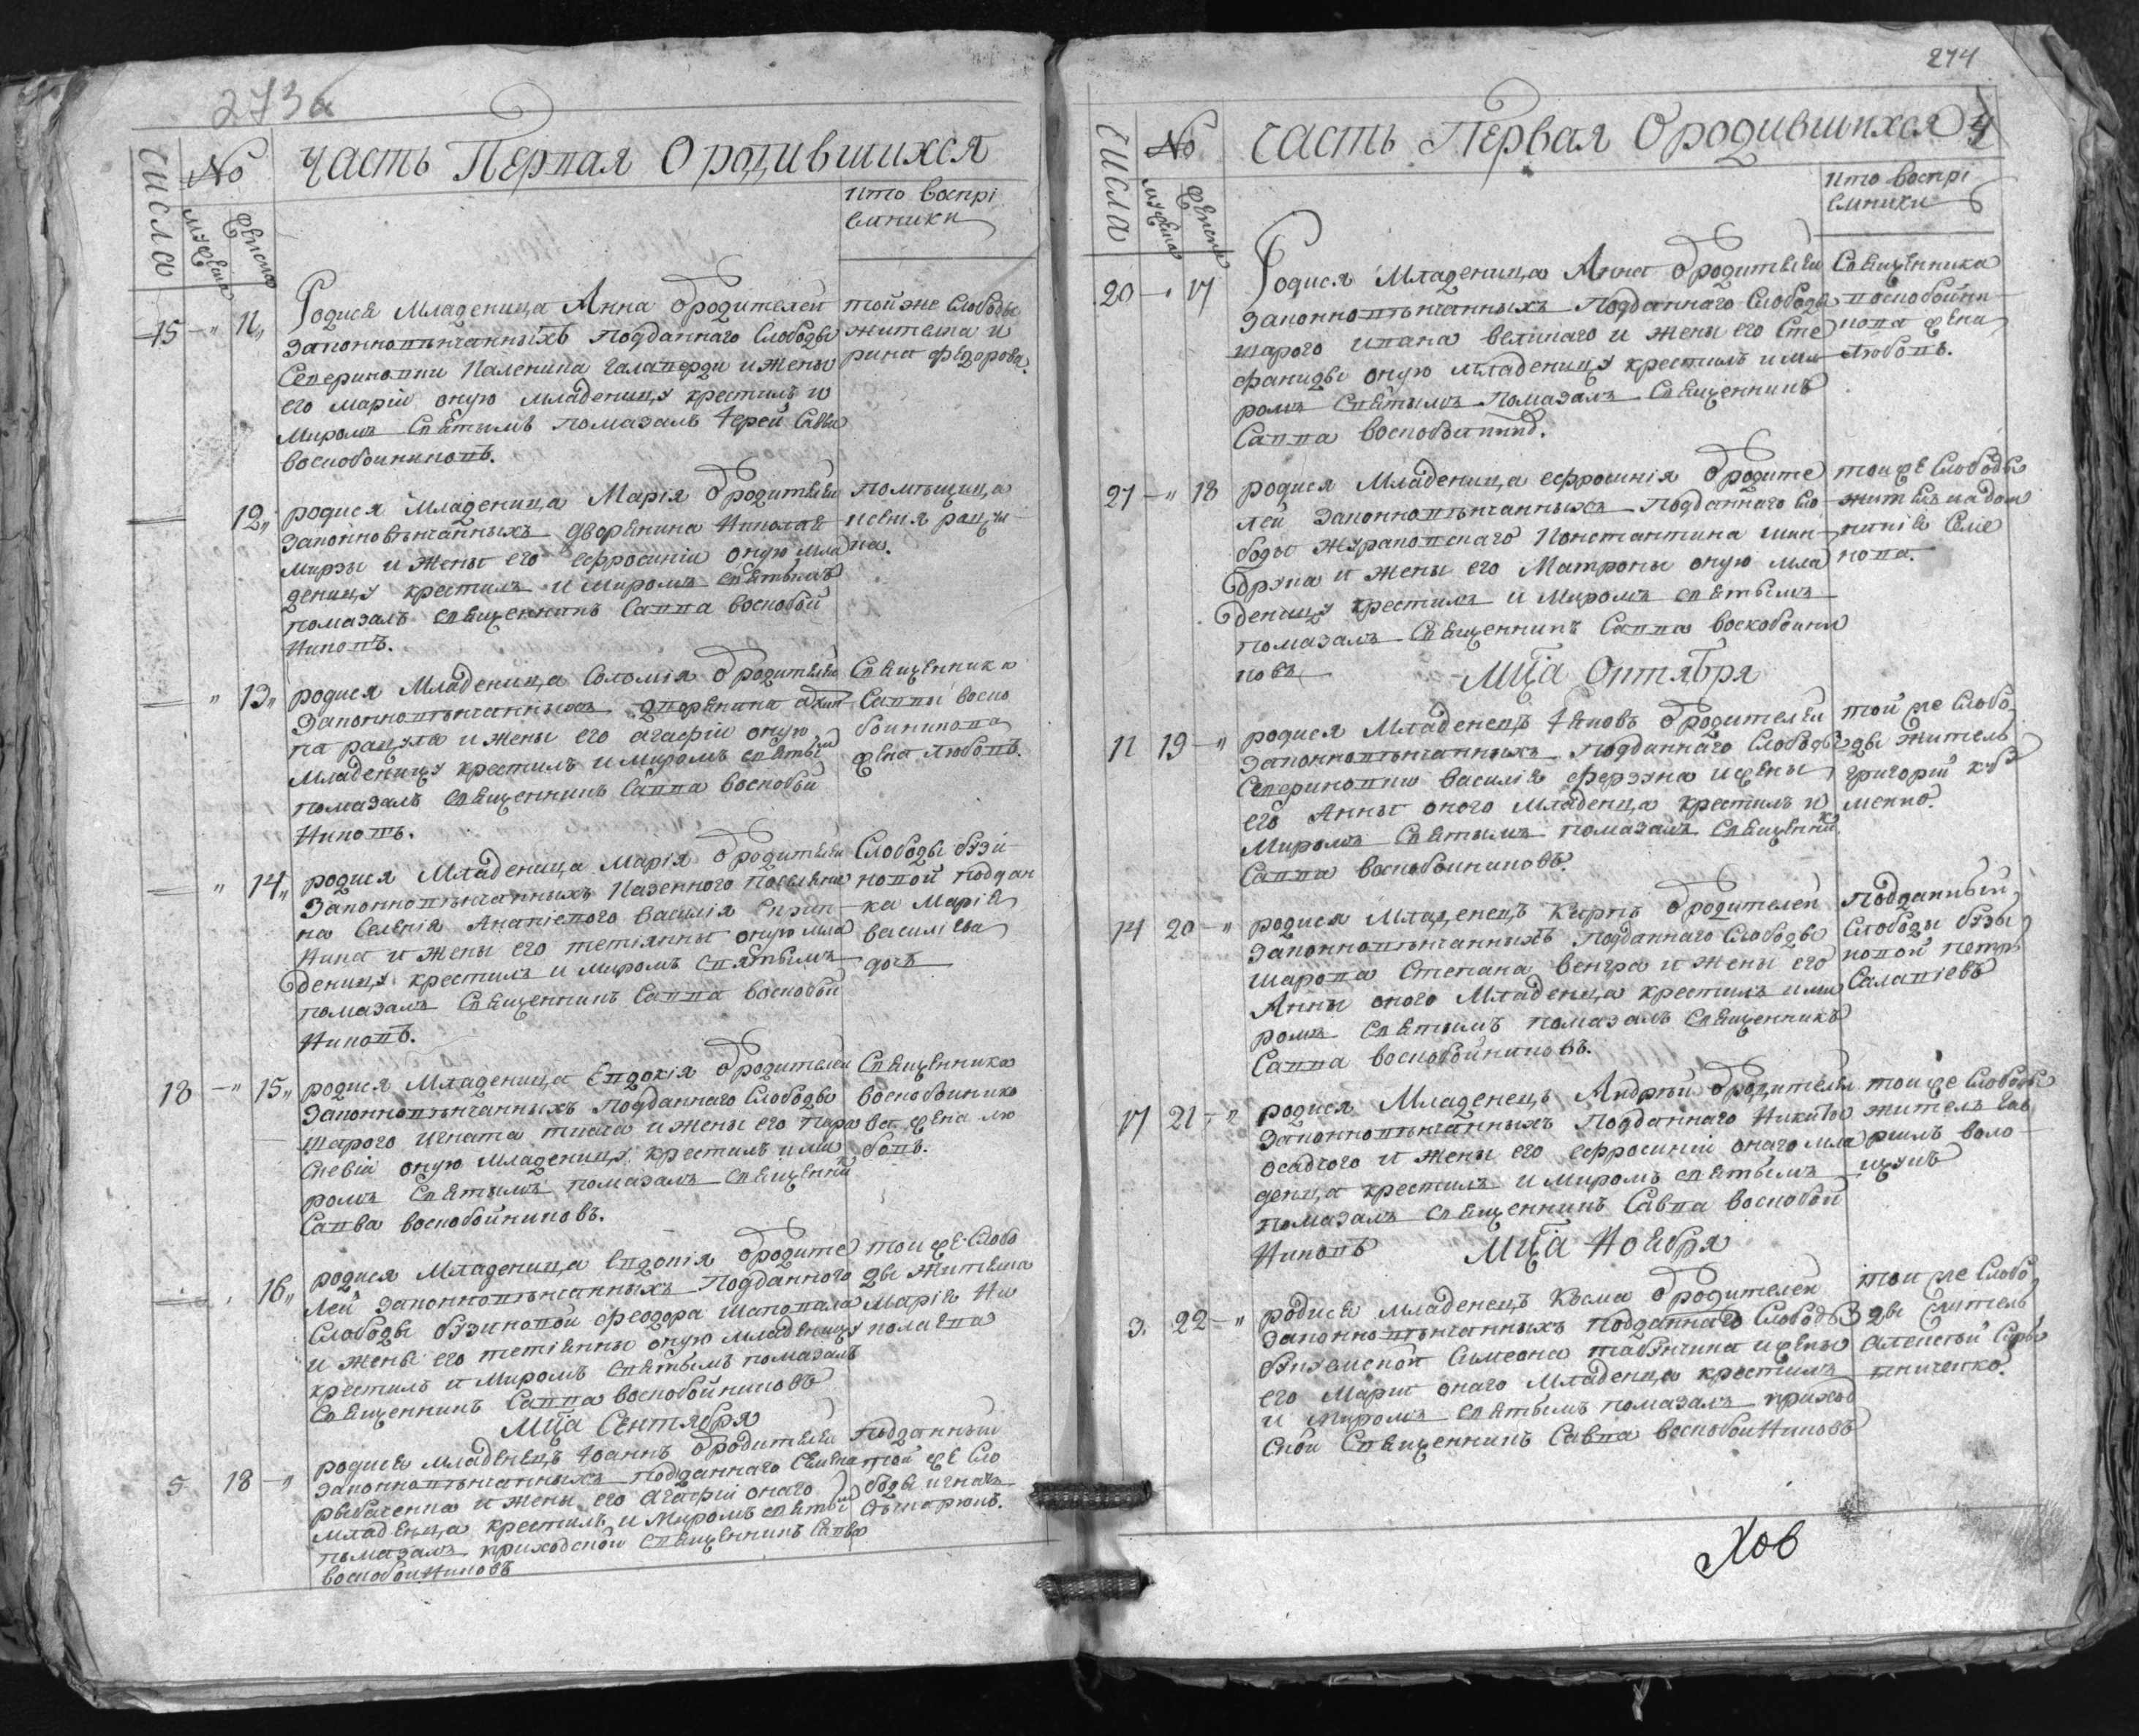 273б
числа
№
мужеска
женска
Часть Первая О родившихся
кто воспрі
емники
15 " 11,, Родися Младеница Анна ѿ родителей
законновѣнчанныхъ подданнаго Слободы
Севериновки Каленика Галаперди и жены
его Маріи оную младеницу крестилъ и
Миромъ Святымъ помазалъ Іерей Савва
Воскобойниковъ.
той же Слободы
жителка И
рина Федорова.
12,, родися Младеница Марія ѿ родителей
законновѣнчанныхъ дворянина Николая
Мирзы и жены его Ефросиніи оную мла
деницу крестилъ и Миромъ святымъ
помазалъ священникъ Савва Воскобой
никовъ.
помѣщица
ксенія рацул
ка.
" 13,, родися Младеница Соломія ѿ родителей
законновѣнчанныхъ дворянина
рацула и жены его Агафіи оную
Младеницу крестилъ и Миромъ святым
помазалъ священникъ Савва Воскобой
никовъ.
Священника
Саввы Воско
бойникова
жена Любовъ.
" 14,, родися Младеница Марія ѿ родителей
законновѣнчанныхъ казенного поселяни
на Селенія Ананіевого Василія Скрип
ника и жены его Тетіянны оную мла
деницу крестилъ и миромъ святымъ
помазалъ Священникъ Савва Воскобой
никовъ.
Слободы бузи
новой поддан
ка Марія
Василіева
дочь
18 " 15,, родися Младеница Евдокія ѿ родителей
законновѣнчанныхъ подданнаго Слободы
Шарого Игната и жены его Пара
скевіи оную младеницу крестилъ и ми
ромъ Святымъ помазалъ Священник
Савва Воскобойниковъ.
Священника
Воскобойнико
ва жена Лю
бовъ.
16,, родися Младеница Евдокія ѿ родите
лей законновѣнчанныхъ подданного
Слободы бузиновой Феодора Шаповала
и жены его Тетіянны оную младеницу
крестилъ и Миромъ святымъ помазалъ
Священникъ Савва Воскобойниковъ
той же Слобо
ды жителка
Марія Ни
колаева
Мца Сентября
5 18 " родися Младенецъ Іоаннъ ѿ родителей
законновѣнчанныхъ подданнаго Семена
рыбаченка и жены его Агафіи онаго
младенца крестилъ и Миромъ святым
помазалъ приходской священникъ Савва
Воскобойниковъ
подданный
той же Сло
боды игнатъ

274
числа
№
мужеска
женска
Часть Первая О родившихся
кто воспрі
емники
20 " 17 Родися Младеница Анна ѿ родителей
законновѣнчанныхъ подданнаго Слободы
шарого ивана великаго и жены его Сте
фаниды оную младеницу крестилъ и ми
ромъ Святымъ помазалъ Священникъ
Савва
Священника
Воскобойни
кова жена
Любовъ.
27 " 18 родися Младеница Ефросинія ѿ родите
лей законновѣнчанныхъ подданнаго Сло
боды Журавовскаго Константина Шан
друка и жены его Матроны оную мла
деницу крестилъ и Миромъ святымъ
помазалъ Священникъ Савва Воскобойни
ковъ
той же Слободы
жителъ
никій Сліе
кова.
Мца Октября
11 19 " родися Младенецъ Іяковъ ѿ родителей
законновѣнчанныхъ подданнаго Слободы
Севериновки Василія и жены
его Анны оного младенца крестилъ и
Миромъ Святымъ помазалъ Священник
Савва Воскобойниковъ.
той же Слобо
ды житель
григорій куз
менко.
14 20 " родися Младенецъ Карпъ ѿ родителей
законновѣнчанныхъ подданнаго Слободы
Шарова Степана Венгра и жены его
Анны оного Младенца крестилъ и ми
ромъ Святымъ помазалъ Священникъ
Савва Воскобойниковъ.
Подданный
Слободы бузы
новой петръ
Салапіевъ
17 21 " родися Младенецъ Андрѣй ѿ родителей
законновѣнчанныхъ подданнаго Никиты
осадчого и жены его Ефросиніи онаго мла
денца крестилъ и Миромъ святымъ
помазалъ священникъ Савва Воскобой
никовъ
той же Слободы
жителъ Гав
рилъ воло
щукъ
Мца Ноября
3. 22 " родися младенецъ Косма ѿ родителей
законновѣнчанныхъ подданнаго Слободы
Симеона и жены
его Маріи онаго Младенца крестилъ
и Миромъ святымъ помазалъ приход
ской Священникъ Савва Воскобойниковъ
той же Слобо
ды житель
Алексѣй